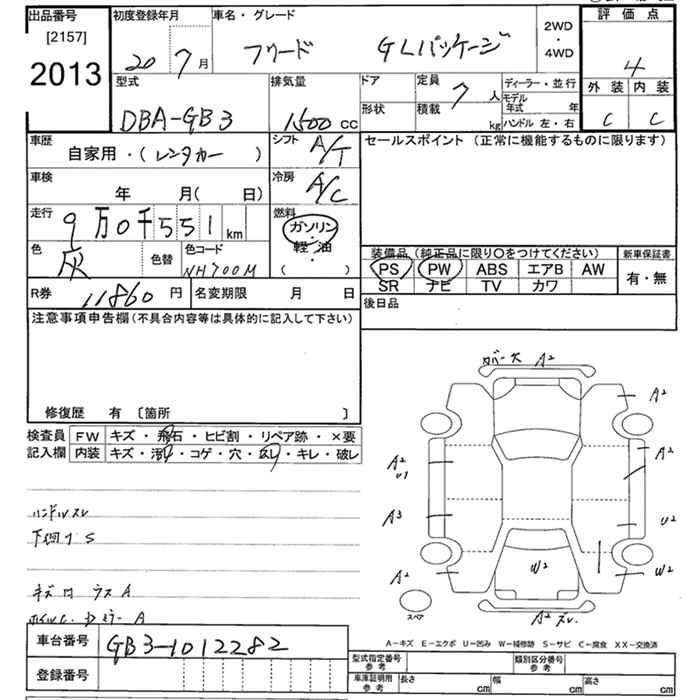 出品番号 初度登録年月 車名・グレード 評価点
[2157] 2WD
2013 20 7月 フリード GLパッケージ ・4WD 4
型式 排気量 ドア 定員 7 人 ディーラー・並行 外装 内装
DBA-GB3 1500 cc 形状 積載 kg モデル年式 年 C C
ハンドル 左・右
車歴 シフト A/T セールスポイント (正常に機能するものに限ります)
自家用・(レンタカー)
車検 冷房 A/C
年 月( 日)
走行 9万0千551 km 燃料 ガソリン・
軽・油
( )
色 灰 色替 色コード NH700M 装備品 (純正品に限り○をつけてください) 新車保証書
PS PW ABS エアB AW 有・無
SR ナビ TV カワ
R券 11860円 名変期限 月 日 後日品
注意事項申告欄(不具合内容等は具体的に記入して下さい)
修復歴 有 〔箇所 〕
検査員 FW キズ・飛石・ヒビ割・リペア跡・×要
記入欄 内装 キズ・汚れ・コゲ・穴・スレ・キレ・破レ
カバー欠 A2
A2
A2
U1
A2
A3
U2
A2
W2
W2
スペア
A2 スレ
ハンドルスレ
下廻り S
キズ 凹 ウス A
ホイルC. Dミラー A
A-キズ E-エクボ U-凹み W-補修跡 S-サビ C-腐食 XX-交換済
車台番号 GB3-1012282
登録番号
型式指定番号 参考 類別区分番号 参考
車庫証明用 参考 長さ cm 幅 cm 高さ cm